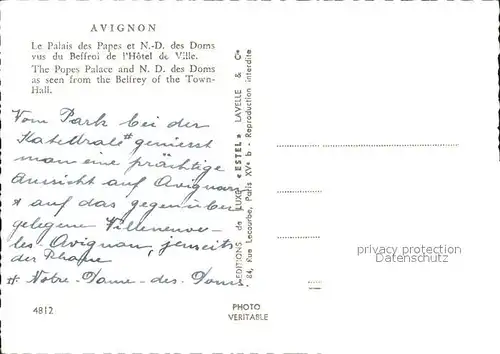 AVIGNON
Le Palais des Papes et N.-D. des Doms
vus du Beffroi de l'Hôtel de Ville.
The Popes Palace and N. D. des Doms
as seen from the Belfrey of the Town-
Hall.
Vom Park bei der
Katedrale# geniesst
man eine prächtige
Aussicht auf Avignon
+ auf das gegenüber
gelegene Villeneuve-
les-Avignon, jenseits
der Rhone
#. Notre-Dame-des-Doms.
4812
EDITIONS de LUXE "ESTEL" LAVELLE & Cie
84, Rue Lecourbe, Paris XVe b - Reproduction interdite
PHOTO
VERITABLE
privacy protection
AnsichtskartenKönig